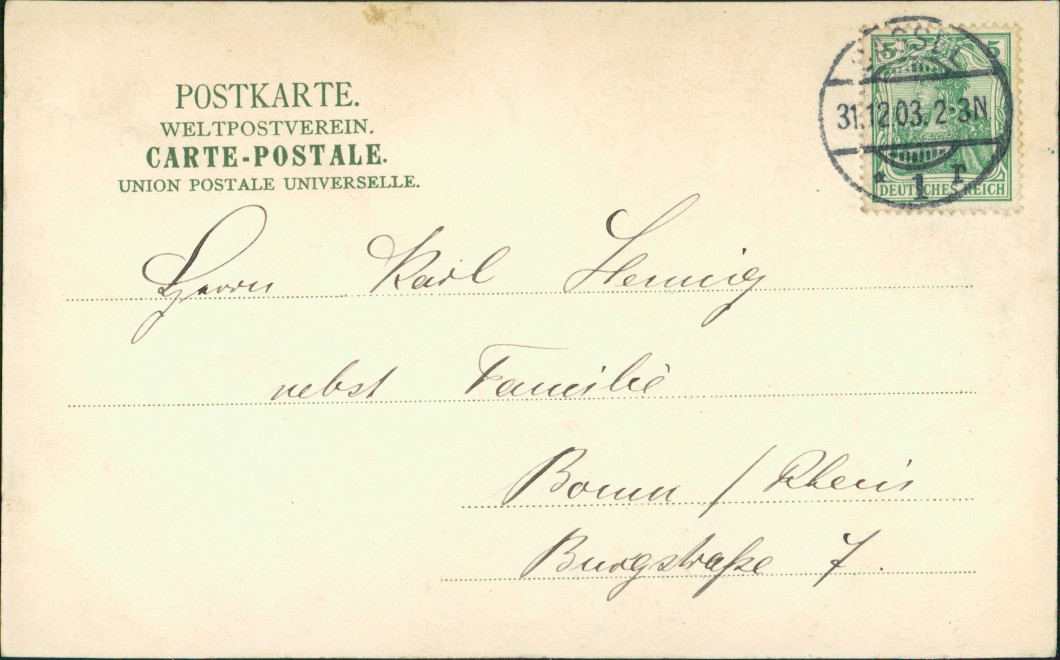 POSTKARTE.
WELTPOSTVEREIN.
CARTE-POSTALE.
UNION POSTALE UNIVERSELLE.
5 5
CASSEL
31.12.03. 2-3N
* 1 r
DEUTSCHES REICH
Herrn Karl Hennig
nebst Familie
Bonn / Rhein
Burgstraße 7.